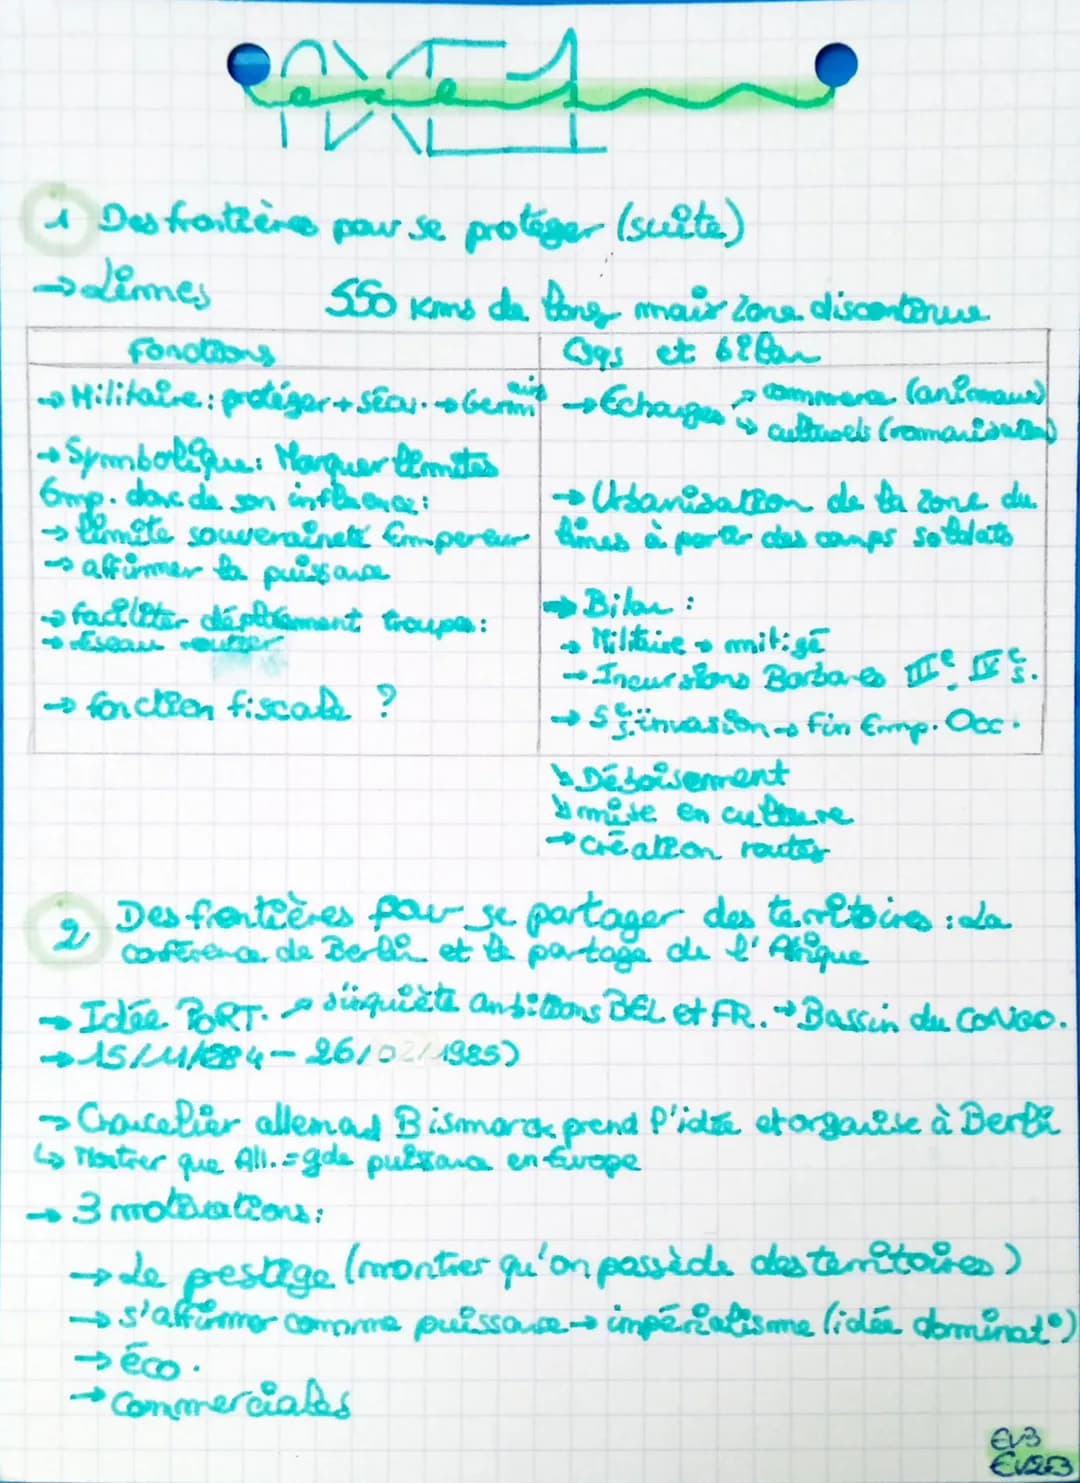 axe 1
1 Des frontières pour se protéger (suite)
→ Limes 550 Kms de long mais zone discontinue
Fonctions
→ Militaire : protéger + sécu. → Germains
→ Symbolique : Marquer limites
Emp. donc de son influence :
→ limite souveraineté Empereur
→ affirmer la puissance
→ faciliter déploiement troupes :
→ réseau routier
→ fonction fiscale ?
Csqs et bilan
→ Échanges ↗ commerce (animaux)
↘ culturels (romanisation)
→ Urbanisation de la zone du
limes à partir des camps soldats
→ Bilan :
→ Militaire → mitigé
→ Incursions Barbares IIIe, IVe s.
→ 5e s. invasion → Fin Emp. Occ.
↘ Déboisement
↘ mise en culture
→ création routes
2 Des frontières pour se partager des territoires : La
conférence de Berlin et le partage de l'Afrique
→ Idée PORT. ↗ s'inquiète ambitions BEL et FR. → Bassin du CONGO.
→ 15/11/1884 - 26/02/1985)
→ Chancelier allemand Bismarck prend l'idée et organise à Berlin
↳ Montrer que All. = gde puissance en Europe
→ 3 motivations :
→ Le prestige (montrer qu'on possède des territoires)
→ s'affirmer comme puissance → impérialisme (idée dominat°)
→ éco.
→ commerciales